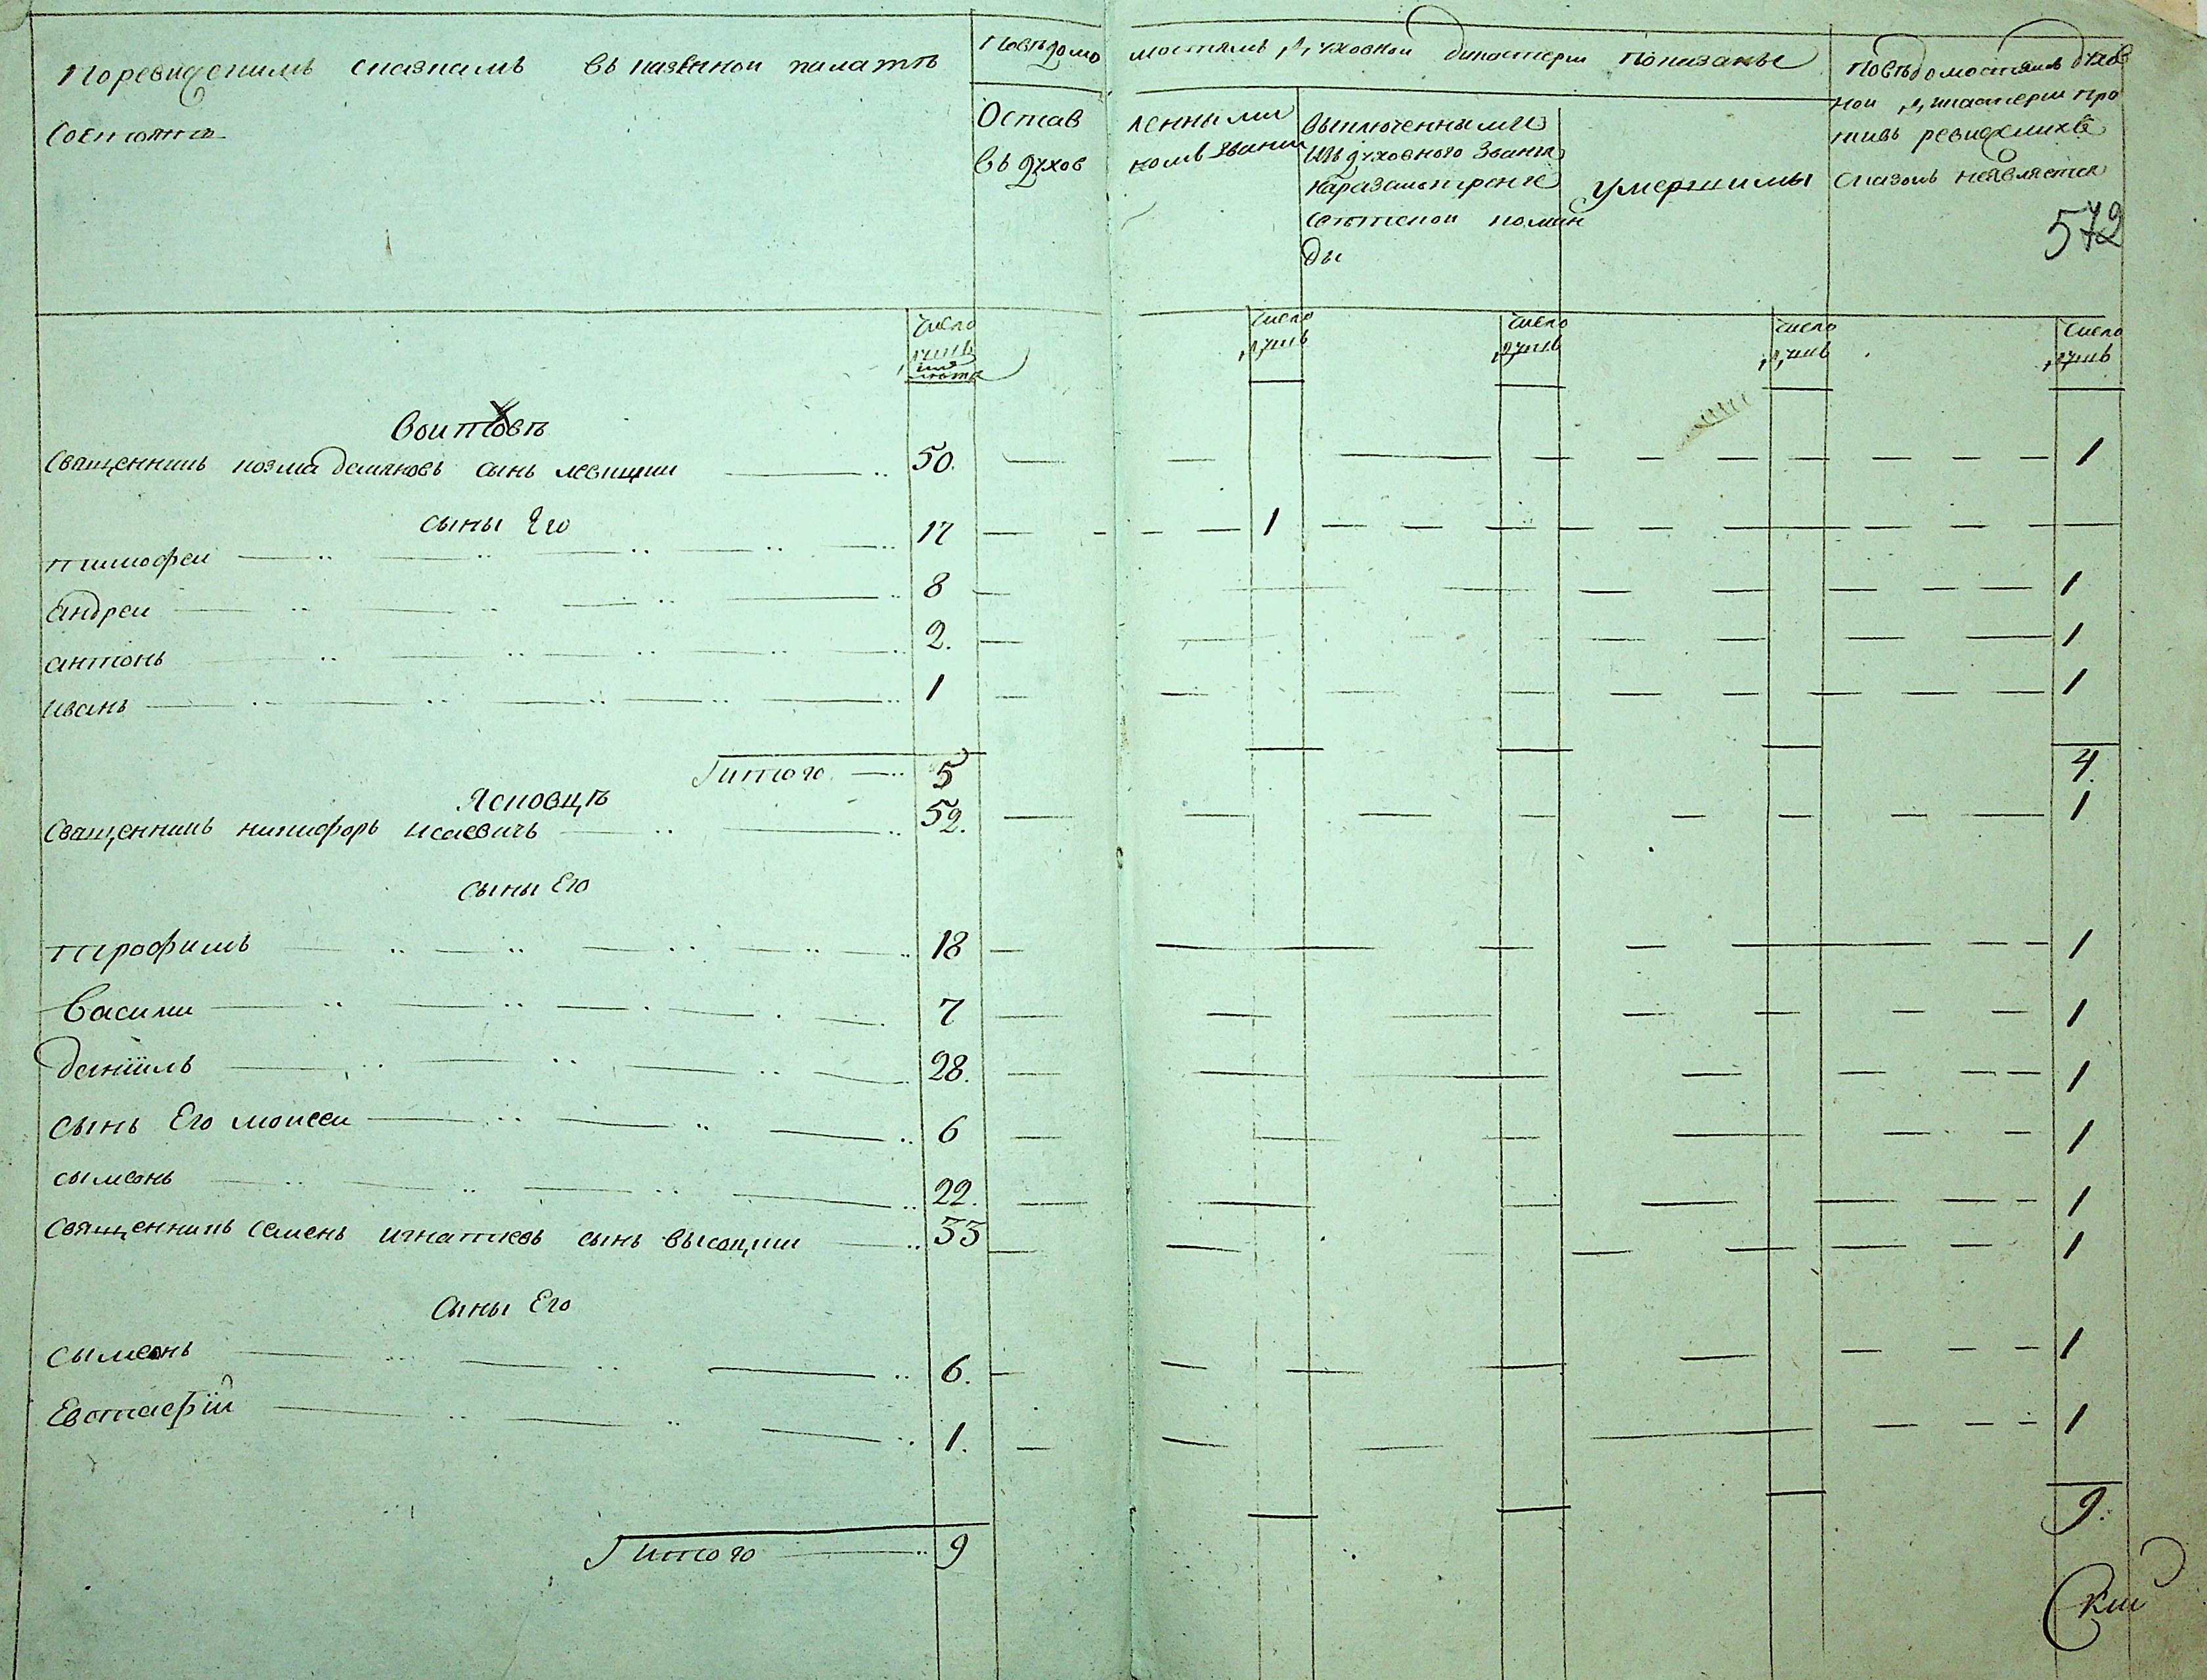 Поревизскимъ сказкамъ въ казенной палатѣ
Состоятъ
Повѣдомо мостямъ духовной дикастерии показаные
Остав ленными
въ духов номъ звании
выключенными
изъ духовного звания
наразсмотрение
свѣтской коман
ды
умершими
повѣдомостямъ духов
ной дикастерии про
тивъ ревизскихъ
сказокъ неявляется
572
Число
душъ
лѣта
Число
душъ
Число
душъ
Число
душъ
Число
душъ
Воитовъ
Священникъ козма демяновъ сынъ левицкии 50. 1
сыны Его
тимофеи 17 1
андреи 8 1
антонъ 2. 1
иванъ 1 1
Итого 5 4.
Ясновцъ
Священникъ никифоръ исаевичъ 52. 1
сыны Его
трофимъ 18 1
Василии 7 1
данїилъ 28. 1
сынъ Его моисеи 6 1
сымеонъ 22. 1
Священникъ семенъ игнатиевъ сынъ высоцкии 33 1
Сыны Его
сымеонъ 6. 1
Евстафїй 1. 1
Итого 9 9.
Скии